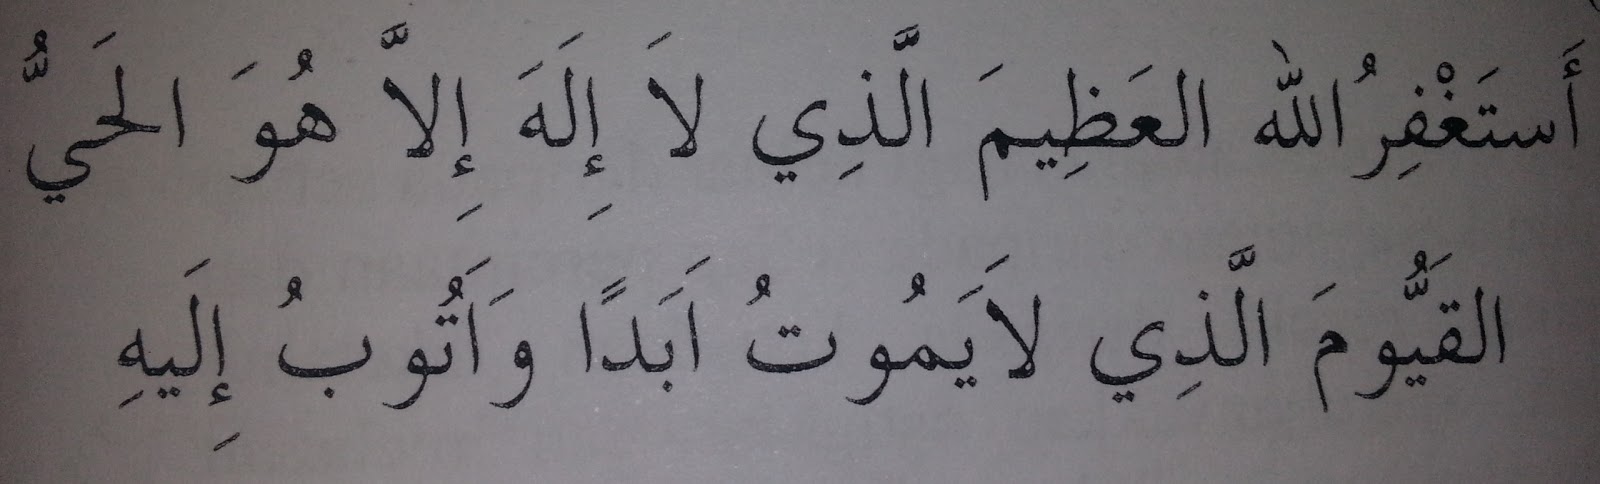 أَستَغْفِرُ اللّٰه العَظِيمَ الَّذِي لاَ إِلَهَ إِلاَّ هُوَ الحَيُّ
القَيُّومَ الَّذِي لاَيَمُوتُ اَبَدًا وَاَتُوبُ إِلَيهِ